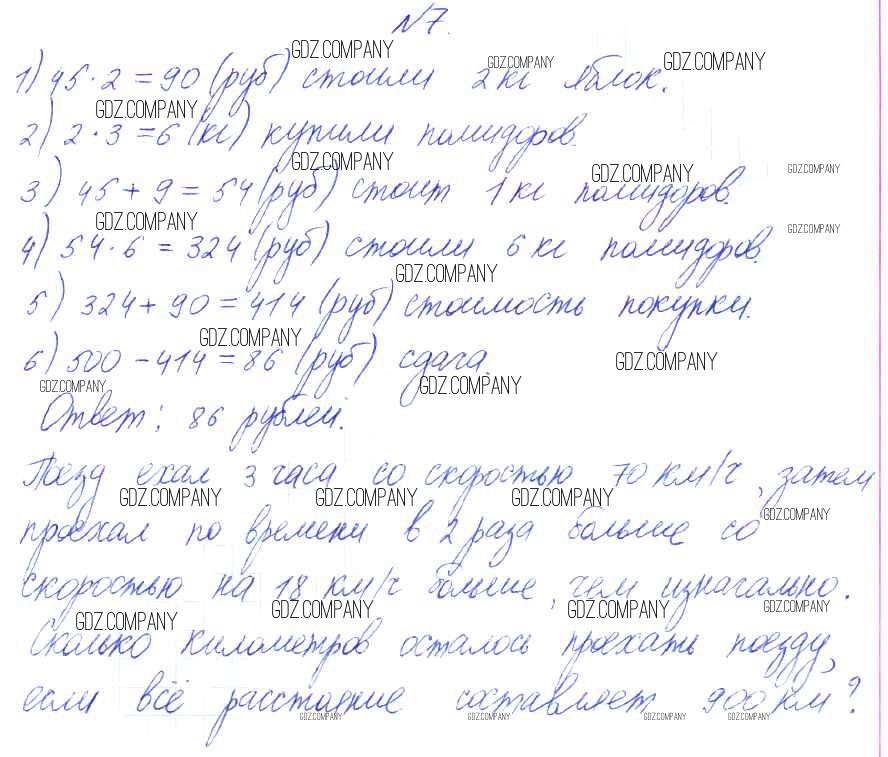 №7.
GDZ.COMPANY
1) 45·2 = 90 (руб) стоили 2 кг яблок.
GDZ.COMPANY GDZ.COMPANY
GDZ.COMPANY
2) 2·3 = 6 (кг) купили помидоров.
GDZ.COMPANY GDZ.COMPANY GDZ.COMPANY
3) 45 + 9 = 54 (руб) стоит 1 кг помидоров.
GDZ.COMPANY GDZ.COMPANY
4) 54·6 = 324 (руб) стоили 6 кг помидоров.
GDZ.COMPANY
5) 324 + 90 = 414 (руб) стоимость покупки.
GDZ.COMPANY
6) 500 - 414 = 86 (руб) сдача.
GDZ.COMPANY
GDZ.COMPANY GDZ.COMPANY
Ответ: 86 рублей.
Поезд ехал 3 часа со скоростью 70 км/ч, затем
GDZ.COMPANY GDZ.COMPANY GDZ.COMPANY
GDZ.COMPANY
проехал по времени в 2 раза больше со
скоростью на 18 км/ч больше, чем изначально.
GDZ.COMPANY GDZ.COMPANY GDZ.COMPANY GDZ.COMPANY
Сколько километров осталось проехать поезду,
если всё расстояние составляет 900 км?
GDZ.COMPANY GDZ.COMPANY GDZ.COMPANY GDZ.COMPANY